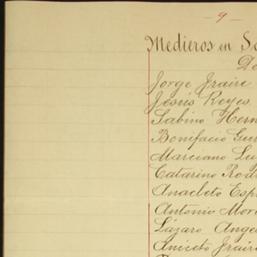 - 9 -
Medieros en S
De
Jorge Jraire
Jesús Reyes
Sabino Hern
Bonifacio Gu
Marciano Lu
Catarino Rod
Anacleto Esp
Antonio Mor
Lázaro Ange
Aniceto Jraire